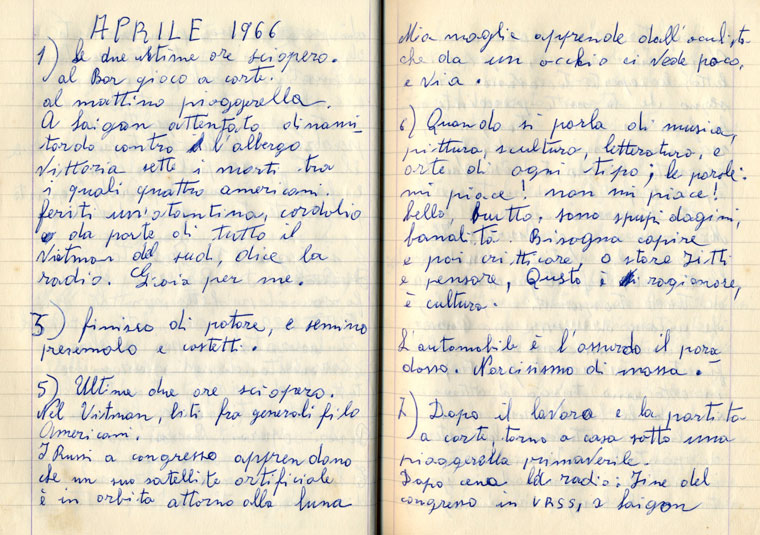 APRILE 1966
1) le due ultime ore sciopero.
al Bar gioco a carte.
al mattino pioggerella.
A Saigon attentato dinami-
tardo contro l'albergo
Vittoria sette i morti tra
i quali quattro americani.
feriti un'ottantina, cordolio
da parte di tutto il
Vietman del sud, dice la
radio. Gioia per me.
3) finisco di potare, e semino
presemolo e costetti.
5) Ultime due ore sciopero.
Nel Vietman, liti fra generali filo
Americani.
I Russi a congresso apprendono
che un suo satellite artificiale
è in orbita attorno alla luna
Mia moglie apprende dall'oculista
che da un occhio ci vede poco,
e via.
6) Quando si parla di musica,
pittura, scultura, letteratura, e
arte di ogni tipo; le parole:
mi piace! non mi piace!
bello, brutto, sono spupidagini,
banalità. Bisogna capire
e poi critticare o stare zitti
e pensare, Questo è ragionare,
è cultura.
L'automobile è l'assurdo il para
dosso. Narcisismo di massa.
7) Dopo il lavoro e la partita
a carte, torno a casa sotto una
pioggerella primaverile.
Dopo cena la radio: fine del
congresso in URSS, a Saigon